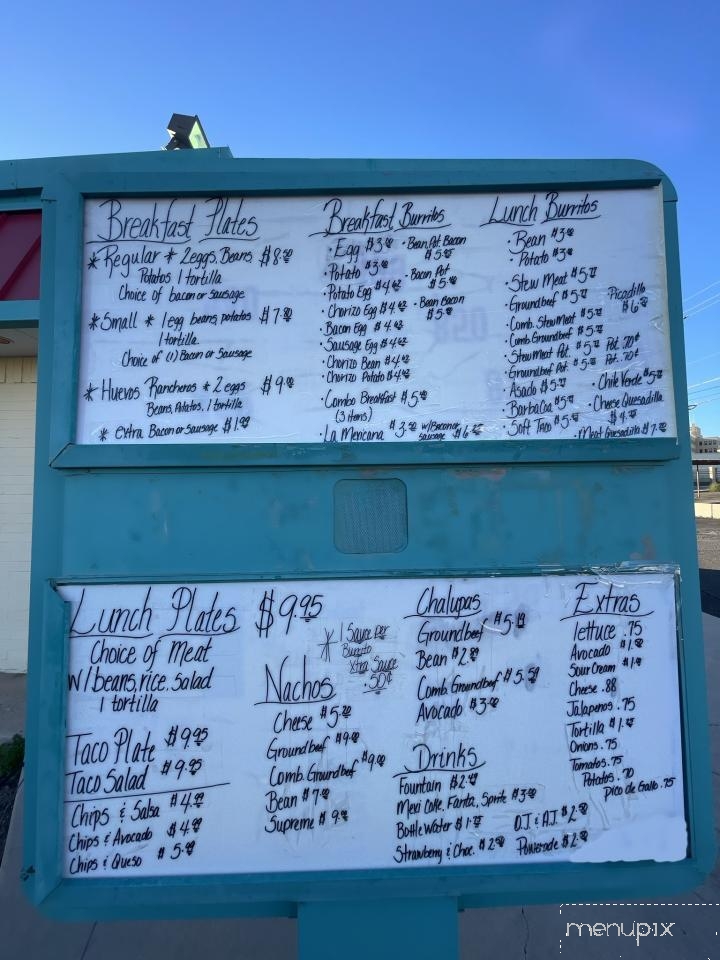 Breakfast Plates
* Regular * 2eggs, Beans, $8
Potatos 1 tortilla
Choice of bacon or Sausage
* Small * 1 egg beans, potatos $7
1 tortilla.
Choice of (1) Bacon or Sausage
* Huevos Rancheros * 2 eggs $9
Beans, Potatos, 1 tortilla
* extra Bacon or Sausage $1
Breakfast Burritos
· Egg $3
· Potato $3
· Potato Egg $4
· Chorizo Egg $4
· Bacon Egg $4
· Sausage Egg $4
· Chorizo Bean $4
· Chorizo Potato $4
· Combo Breakfast $5
(3 items)
· La Mexicana $3 w/Bacon or Sausage $6
· Bean, Pot, Bacon
$5
· Bacon Pot
$5
· Bean Bacon
$5
Lunch Burritos
· Bean $3
· Potato $3
· Stew Meat $5
· Groundbeef $5
· Comb. Stew Meat $5
· Comb Groundbeef $5
· Stew Meat Pot. $5 Pot. 70¢
· Groundbeef Pot. $5 Pot. 70¢
· Asado $5
· Barbacoa $5
· Soft Taco $5
Picadillo
$6
· Chile Verde $5
· Cheese Quesadilla
$4
· Meat Quesadilla $7
Lunch Plates $9.95
Choice of Meat
W/beans, rice, Salad
1 tortilla
Taco Plate $9.95
Taco Salad $9.95
Chips & Salsa $4
Chips & Avocado $4
Chips & Queso $5
* 1 Sauce per
Burrito
Xtra Sauce
.50¢
Nachos
Cheese $5
Groundbeef $9
Comb. Groundbeef $9
Bean $7
Supreme $9
Chalupas
Groundbeef $5
Bean $2
Comb. Groundbeef $5
Avocado $3
Drinks
Fountain $2
Mexi Coke, Fanta, Sprite $3
Bottle Water $1
O.J. & A.J. $2
Strawberry & Choc. $2
Powerade $2
Extras
lettuce .75
Avocado $1
Sour Cream $1
Cheese .88
Jalapenos .75
Tortilla $1
Onions .75
Tomatos .75
Potatos .70
Pico de Gallo .75
menupix